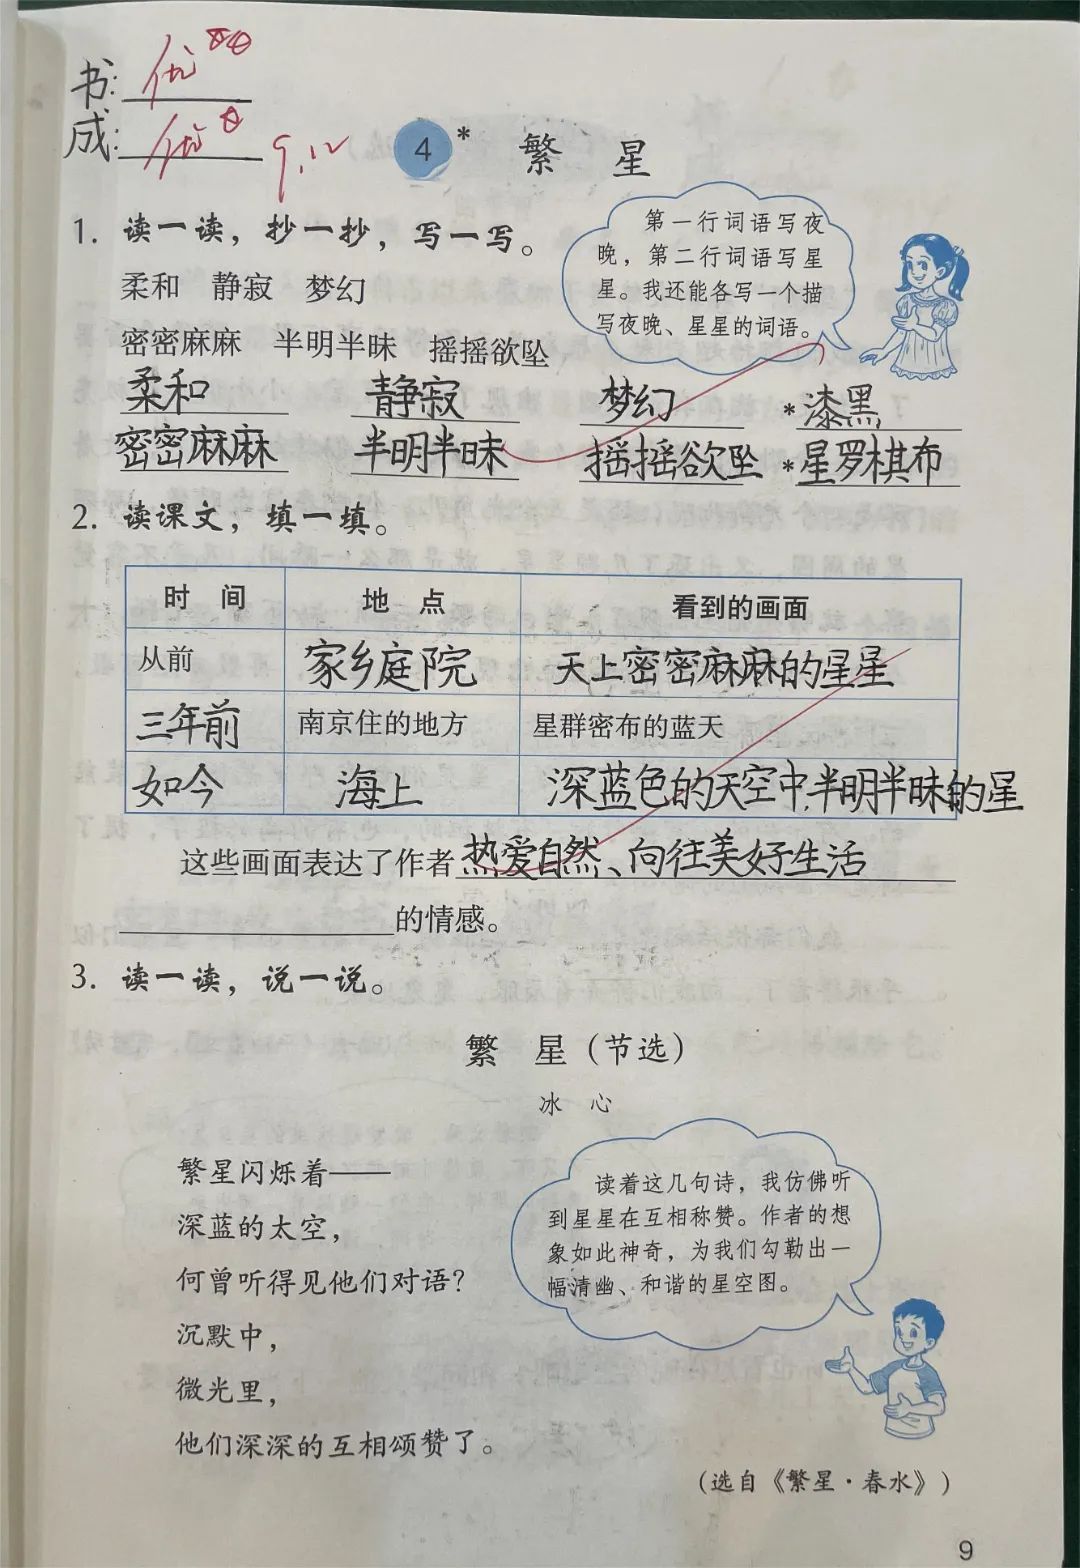 书：优
成：优 9.12
4* 繁 星
1. 读一读，抄一抄，写一写。
第一行词语写夜
晚，第二行词语写星
星。我还能各写一个描
写夜晚、星星的词语。
柔和 静寂 梦幻
密密麻麻 半明半昧 摇摇欲坠
柔和 静寂 梦幻 *漆黑
密密麻麻 半明半昧 摇摇欲坠 *星罗棋布
2. 读课文，填一填。
时 间 地 点 看到的画面
从前 家乡庭院 天上密密麻麻的星星
三年前 南京住的地方 星群密布的蓝天
如今 海上 深蓝色的天空中,半明半昧的星
这些画面表达了作者热爱自然、向往美好生活
的情感。
3. 读一读，说一说。
繁 星（节选）
冰 心
繁星闪烁着——
深蓝的太空，
何曾听得见他们对语？
沉默中，
微光里，
他们深深的互相颂赞了。
读着这几句诗，我仿佛听
到星星在互相称赞。作者的想
象如此神奇，为我们勾勒出一
幅清幽、和谐的星空图。
（选自《繁星·春水》）
9